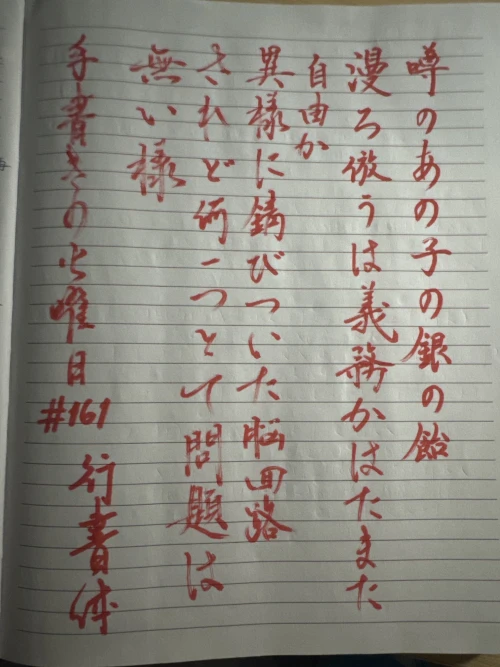 噂のあの子の銀の飴
漫ろ倣うは義務かはたまた
自由か
異様に錆びついた脳回路
されど何一つとて問題は
無い様
手書きの火曜日
#161
行書体